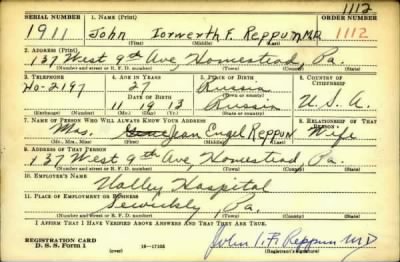 1112
SERIAL NUMBER 1. NAME (Print) ORDER NUMBER
1911 John Iorwerth F. Reppun MD 1112
(First) (Middle) (Last)
2. ADDRESS (Print)
137 West 9th Ave, Homestead, Pa.
(Number and street or R. F. D. number) (Town) (County) (State)
3. TELEPHONE 4. AGE IN YEARS 5. PLACE OF BIRTH 6. COUNTRY OF CITIZENSHIP
Ho-2197 27 Russia
DATE OF BIRTH
11 19 13 Russia U.S.A.
(Exchange) (Number) (Mo.) (Day) (Yr.) (State or country)
7. NAME OF PERSON WHO WILL ALWAYS KNOW YOUR ADDRESS 8. RELATIONSHIP OF THAT PERSON
Mrs. Jean Engel Reppun Wife
(Mr., Mrs., Miss) (First) (Middle) (Last)
9. ADDRESS OF THAT PERSON
137 West 9th Ave, Homestead, Pa.
(Number and street or R. F. D. number) (Town) (County) (State)
10. EMPLOYER'S NAME
Valley Hospital
11. PLACE OF EMPLOYMENT OR BUSINESS
Sewickley, Pa.
(Number and street or R. F. D. number) (Town) (County) (State)
I AFFIRM THAT I HAVE VERIFIED ABOVE ANSWERS AND THAT THEY ARE TRUE.
REGISTRATION CARD
D. S. S. Form 1 (over) 16-17105 John I. F. Reppun MD
(Registrant's signature)